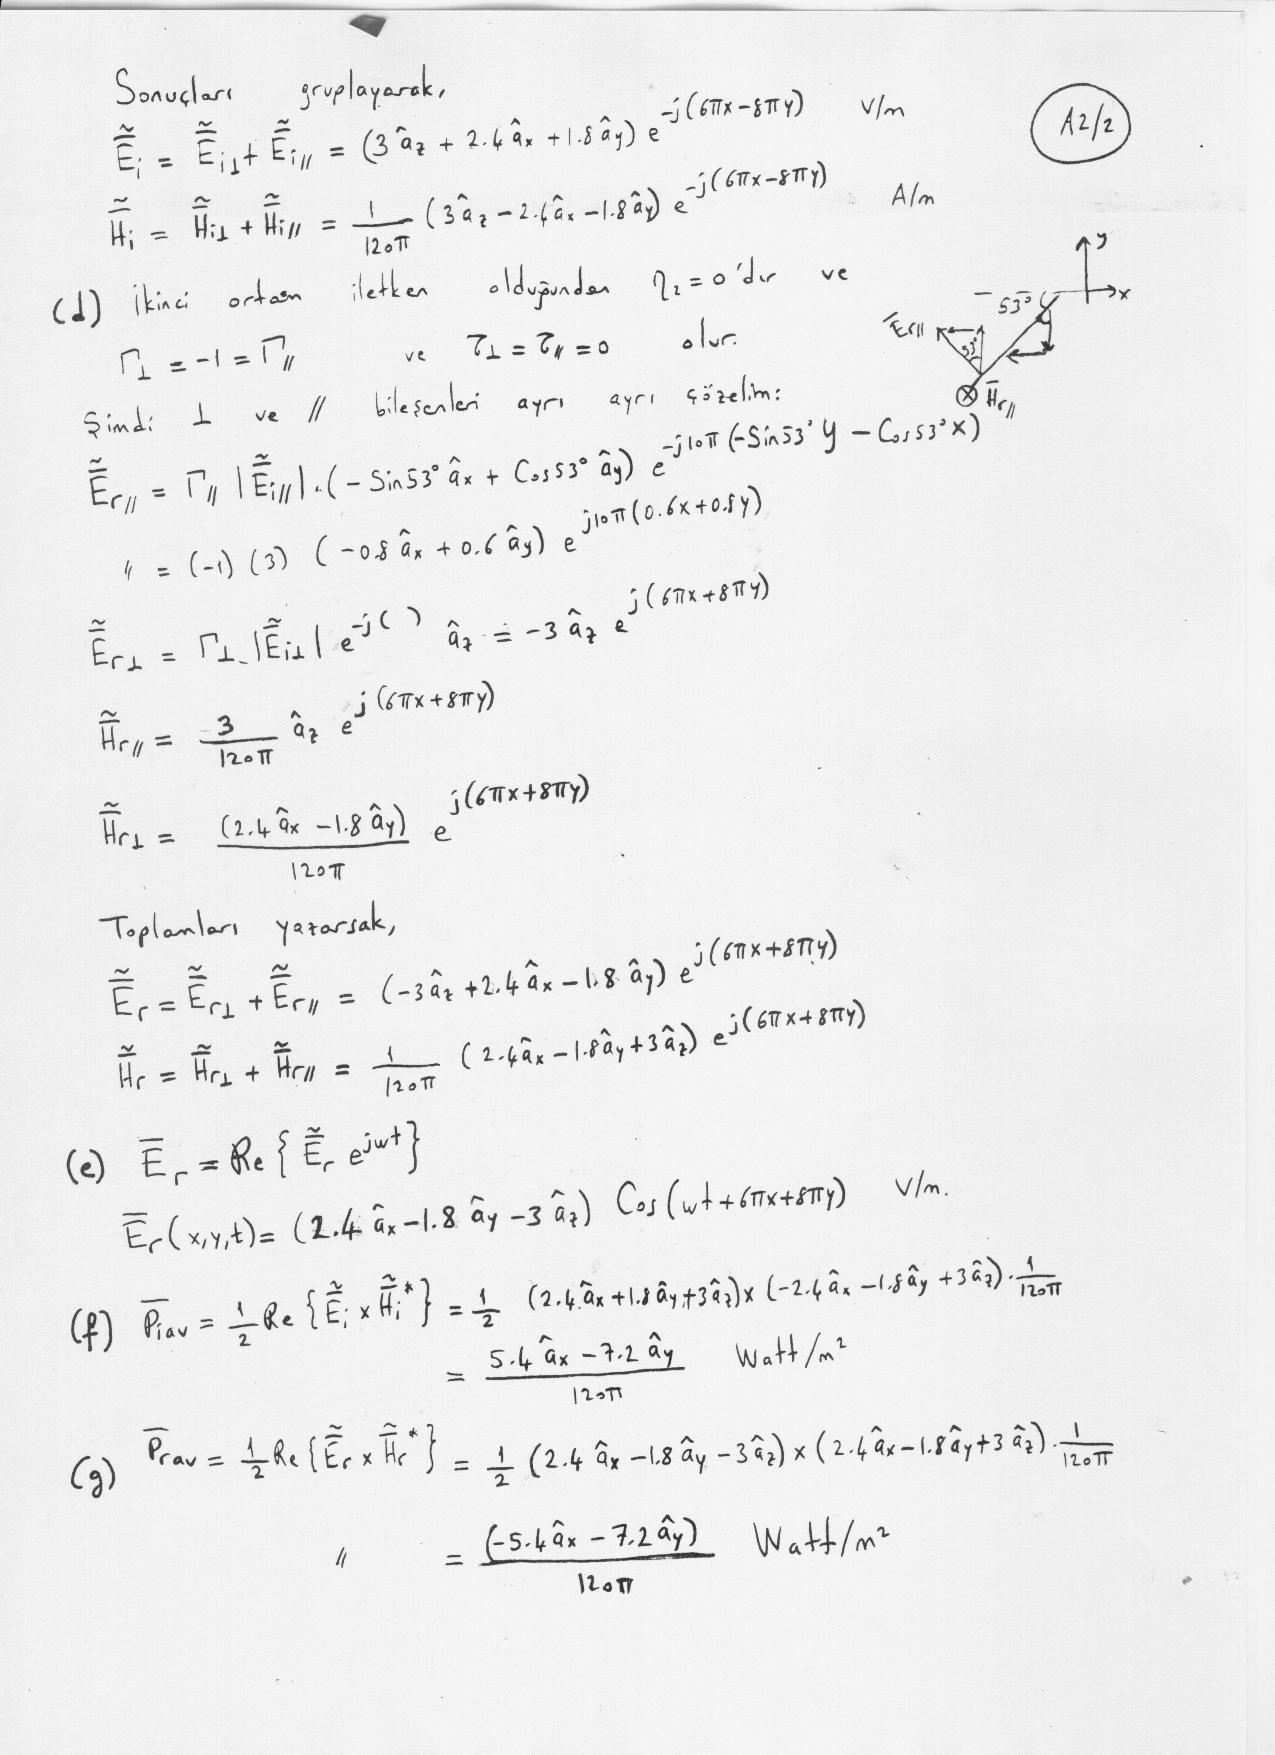 Sonuçları gruplayarak,
A2/2
Ẽi = Ẽi⊥ + Ẽi// = (3âz + 2.4âx + 1.8ây) e^-j(6πx-8πy) V/m
H̃i = H̃i⊥ + H̃i// = 1/120π (3âz - 2.4âx - 1.8ây) e^-j(6πx-8πy) A/m
(d) İkinci ortam iletken olduğundan η2 = 0'dır ve
y
x
53°
Er//
53°
Hr//
Γ⊥ = -1 = Γ// ve τ⊥ = τ// = 0 olur.
Şimdi ⊥ ve // bileşenleri ayrı ayrı çözelim:
Ẽr// = Γ// |Ẽi//| . (- Sin53° âx + Cos53° ây) e^-j10π(-Sin53° y - Cos53° x)
" = (-1) (3) (-0.8 âx + 0.6 ây) e^j10π(0.6x+0.8y)
Ẽr⊥ = Γ⊥ . |Ẽi⊥| e^-j( ) âz = -3 âz e^j(6πx+8πy)
H̃r// = 3/120π âz e^j(6πx+8πy)
H̃r⊥ = (2.4 âx - 1.8 ây)/120π e^j(6πx+8πy)
Toplamları yazarsak,
Ẽr = Ẽr⊥ + Ẽr// = (-3âz + 2.4âx - 1.8 ây) e^j(6πx+8πy)
H̃r = H̃r⊥ + H̃r// = 1/120π (2.4âx - 1.8ây + 3âz) e^j(6πx+8πy)
(e) Er = Re{Ẽr e^jwt}
Er(x,y,t) = (2.4 âx - 1.8 ây - 3 âz) Cos(wt + 6πx + 8πy) V/m.
(f) Piav = 1/2 Re{Ẽi x H̃i*} = 1/2 (2.4âx + 1.8ây + 3âz) x (-2.4âx - 1.8ây + 3âz) . 1/120π
= (5.4 âx - 7.2 ây)/120π Watt/m²
(g) Prav = 1/2 Re{Ẽr x H̃r*} = 1/2 (2.4 âx - 1.8 ây - 3âz) x (2.4âx - 1.8ây + 3 âz) . 1/120π
" = (-5.4âx - 7.2ây)/120π Watt/m²